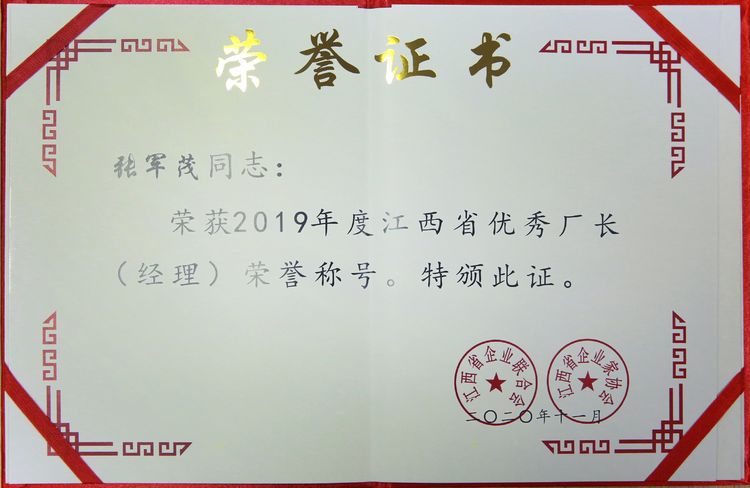 荣誉证书
张军茂同志：
荣获2019年度江西省优秀厂长
（经理）荣誉称号。特颁此证。
江西省企业联合会
江西省企业家协会
二〇二〇年十一月